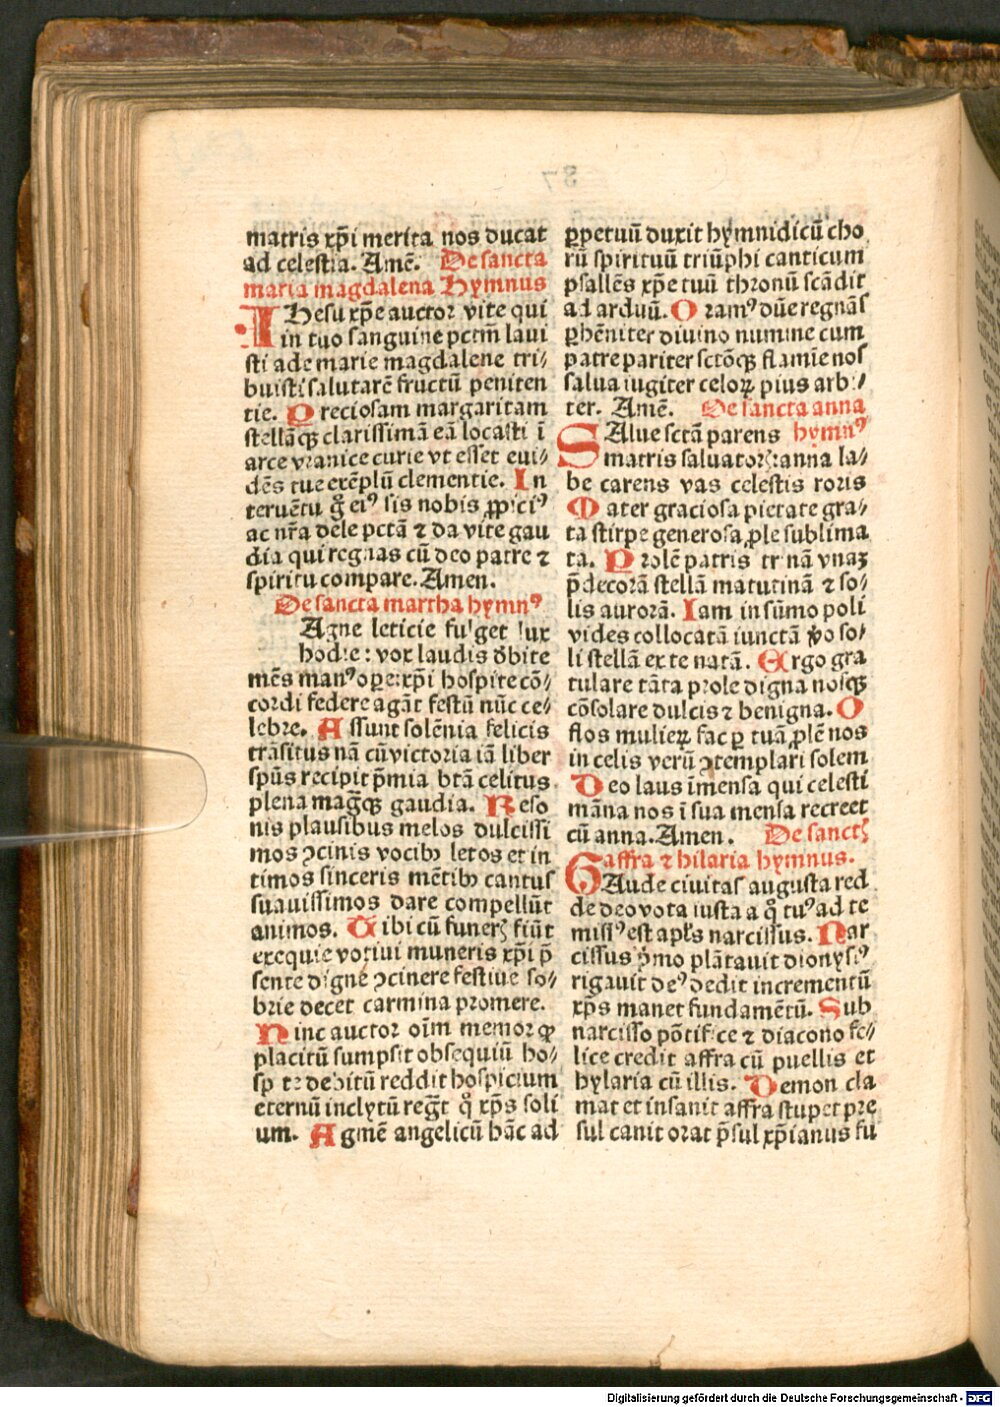 matris xp̄i merita nos ducat
ad celestia. Amē. De sancta
maria magdalena Hymnus
IHesu xp̄e auctor vite qui
in tuo sanguine pctm̄ laui
sti ade marie magdalene tri⸗
buisti salutarē fructū peniten
tie. Preciosam margaritam
stellāqꝫ clarissimā eā locasti ī
arce vranice curie vt esset eui⸗
dēs tue exēplū clementie. In
teruētu q̄ eiꝰ sis nobis ꝓpiciꝰ
ac nr̄a dele pctā ⁊ da vite gau
dia qui regnas cū deo patre ⁊
spiritu compare. Amen.
De sancta martha hymnꝰ
Agne leticie fulget lux
hodie: vox laudis d̄bite
mēs manꝰ oꝑe: xp̄i hospite cō⸗
cordi federe agāt festū nūc ce⸗
lebre. Assunt solēnia felicis
trāsitus nā cū victoria iā liber
spūs recipit p̄mia btā celitus
plena magn̄qꝫ gaudia. Reso
nis plausibus melos dulcissi
mos ꝯcinis vocibꝫ letos et in
timos sinceris mētibꝫ cantus
suauissimos dare compellūt
animos. Tibi cū funerꝭ fiūt
exequie votiui muneris xp̄i p̄
sente digne ꝯcinere festiue so⸗
brie decet carmina promere.
Hinc auctor oīm memor qꝫ
placitū sumpsit obsequiū ho⸗
spite debitū reddit hospicium
eternū inclytū regn̄t q̄ xp̄s soli
um. Agmē angelicū hāc ad
ꝑpetuū duxit hymnidicū cho
rū spirituū triūphi canticum
psallēs xp̄e tuū thronū scādit
ad arduū. Oramꝰ dūe regnās
ꝑhēniter diuino numine cum
patre pariter sctōqꝫ flamīe nos
salua iugiter celoꝝ pius arbi⸗
ter. Amē. De sancta anna
SAlue sctā parens hymnꝰ
matris saluatorꝭ: anna la⸗
be carens vas celestis roris
Mater graciosa pietate gra⸗
ta stirpe generosa ꝓle sublima
ta. Prolē patris trinā vnaꝫ
p̄decorā stellā matutinā ⁊ so⸗
lis aurorā. Iam in sūmo poli
vides collocatā iunctā ꝟo so⸗
li stellā ex te natā. Ergo gra
tulare tāta prole digna nosqꝫ
cōsolare dulcis ⁊ benigna. O
flos mulieꝝ fac ꝑ tuā ꝓlē nos
in celis verū ꝯtemplari solem
Deo laus īmensa qui celesti
māna nos ī sua mensa recreet
cū anna. Amen. De sanctꝭ
affra ⁊ hilaria hymnus.
GAude ciuitas augusta red
de deo vota iusta a q̄ tuꝰ ad te
misiꝰ est apl̄s narcissus. Nar
cissus p̄mo plātauit dionysiꝰ
rigauit deꝰ dedit incrementū
xp̄s manet fundamētū. Sub
narcisso pōtifice ⁊ diacono fe⸗
lice credit affra cū puellis et
hylaria cū illis. Demon cla
mat et insanit affra stupet pre
sul canit orat p̄sul xp̄ianus fu
Digitalisierung gefördert durch die Deutsche Forschungsgemeinschaft - DFG